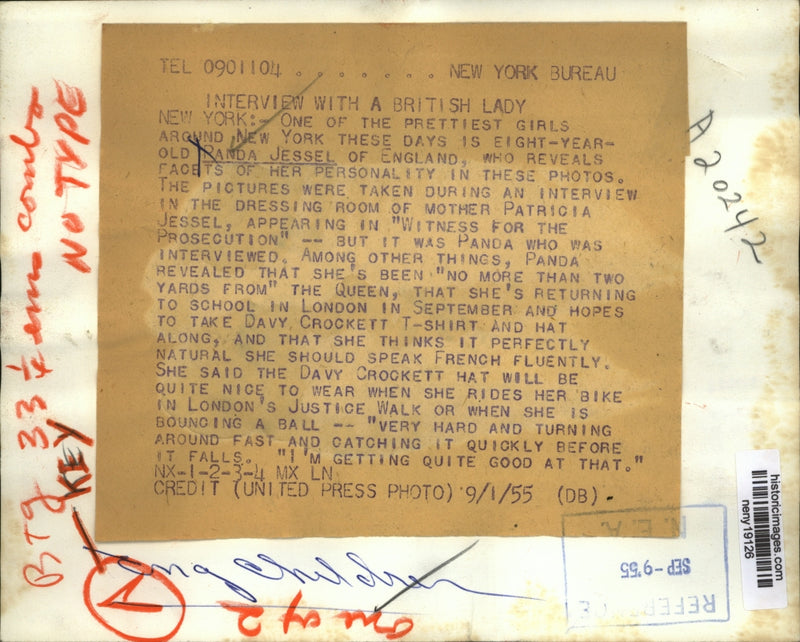 TEL 0901104 . . . . . . . NEW YORK BUREAU
INTERVIEW WITH A BRITISH LADY
NEW YORK:- ONE OF THE PRETTIEST GIRLS
AROUND NEW YORK THESE DAYS IS EIGHT-YEAR-
OLD PANDA JESSEL OF ENGLAND, WHO REVEALS
FACETS OF HER PERSONALITY IN THESE PHOTOS.
THE PICTURES WERE TAKEN DURING AN INTERVIEW
IN THE DRESSING ROOM OF MOTHER PATRICIA
JESSEL, APPEARING IN "WITNESS FOR THE
PROSECUTION" -- BUT IT WAS PANDA WHO WAS
INTERVIEWED. AMONG OTHER THINGS, PANDA
REVEALED THAT SHE'S BEEN "NO MORE THAN TWO
YARDS FROM" THE QUEEN, THAT SHE'S RETURNING
TO SCHOOL IN LONDON IN SEPTEMBER AND HOPES
TO TAKE DAVY CROCKETT T-SHIRT AND HAT
ALONG, AND THAT SHE THINKS IT PERFECTLY
NATURAL SHE SHOULD SPEAK FRENCH FLUENTLY.
SHE SAID THE DAVY CROCKETT HAT WILL BE
QUITE NICE TO WEAR WHEN SHE RIDES HER BIKE
IN LONDON'S JUSTICE WALK OR WHEN SHE IS
BOUNCING A BALL -- "VERY HARD AND TURNING
AROUND FAST AND CATCHING IT QUICKLY BEFORE
IT FALLS. "I'M GETTING QUITE GOOD AT THAT."
NX-1-2-3-4 MX LN
CREDIT (UNITED PRESS PHOTO) 9/1/55 (DB).
A20242
Btg 33 1/4 ems combo
NO TYPE
KEY
Children
one of 2
N.E.A.
SEP -9 '55
REFERENCE
historicimages.com
neny19126